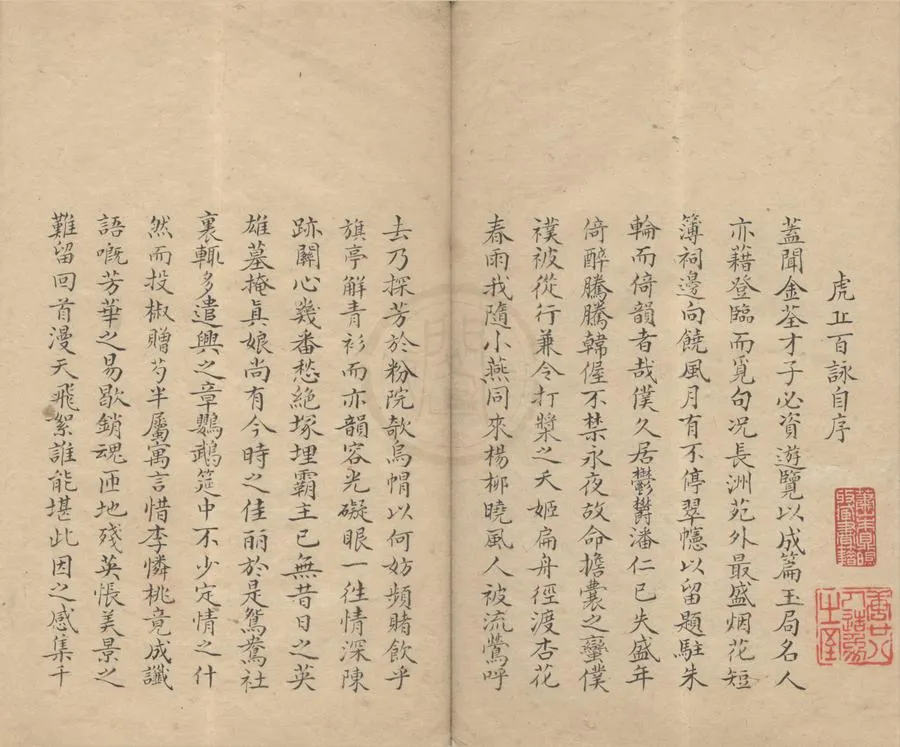 虎丘百詠自序
蓋聞金荃才子必資遊覽以成篇玉局名人
亦藉登臨而覓句況長洲苑外最盛烟花短
簿祠邊向饒風月有不停翠幰以留題駐朱
輪而倚韻者哉僕久居鬱鬱潘仁已失盛年
倚醉騰騰韓偓不禁永夜故命擔囊之蠻僕
襆被從行兼令打槳之夭姬扁舟徑渡杏花
春雨我隨小燕同來楊柳曉風人被流鶯呼
去乃探芳於粉院欹烏帽以何妨頻賭飲乎
旗亭解青衫而亦韻容光礙眼一往情深陳
跡關心幾番愁絕塚埋霸主已無昔日之英
雄墓掩真娘尚有今時之佳丽於是鴛鴦社
裏輒多遣興之章鸚鵡筵中不少定情之什
然而投椒贈芍半屬寓言惜李憐桃竟成讖
語嘅芳華之易歇銷魂匝地殘英悵美景之
難留回首漫天飛絮誰能堪此因之感集千